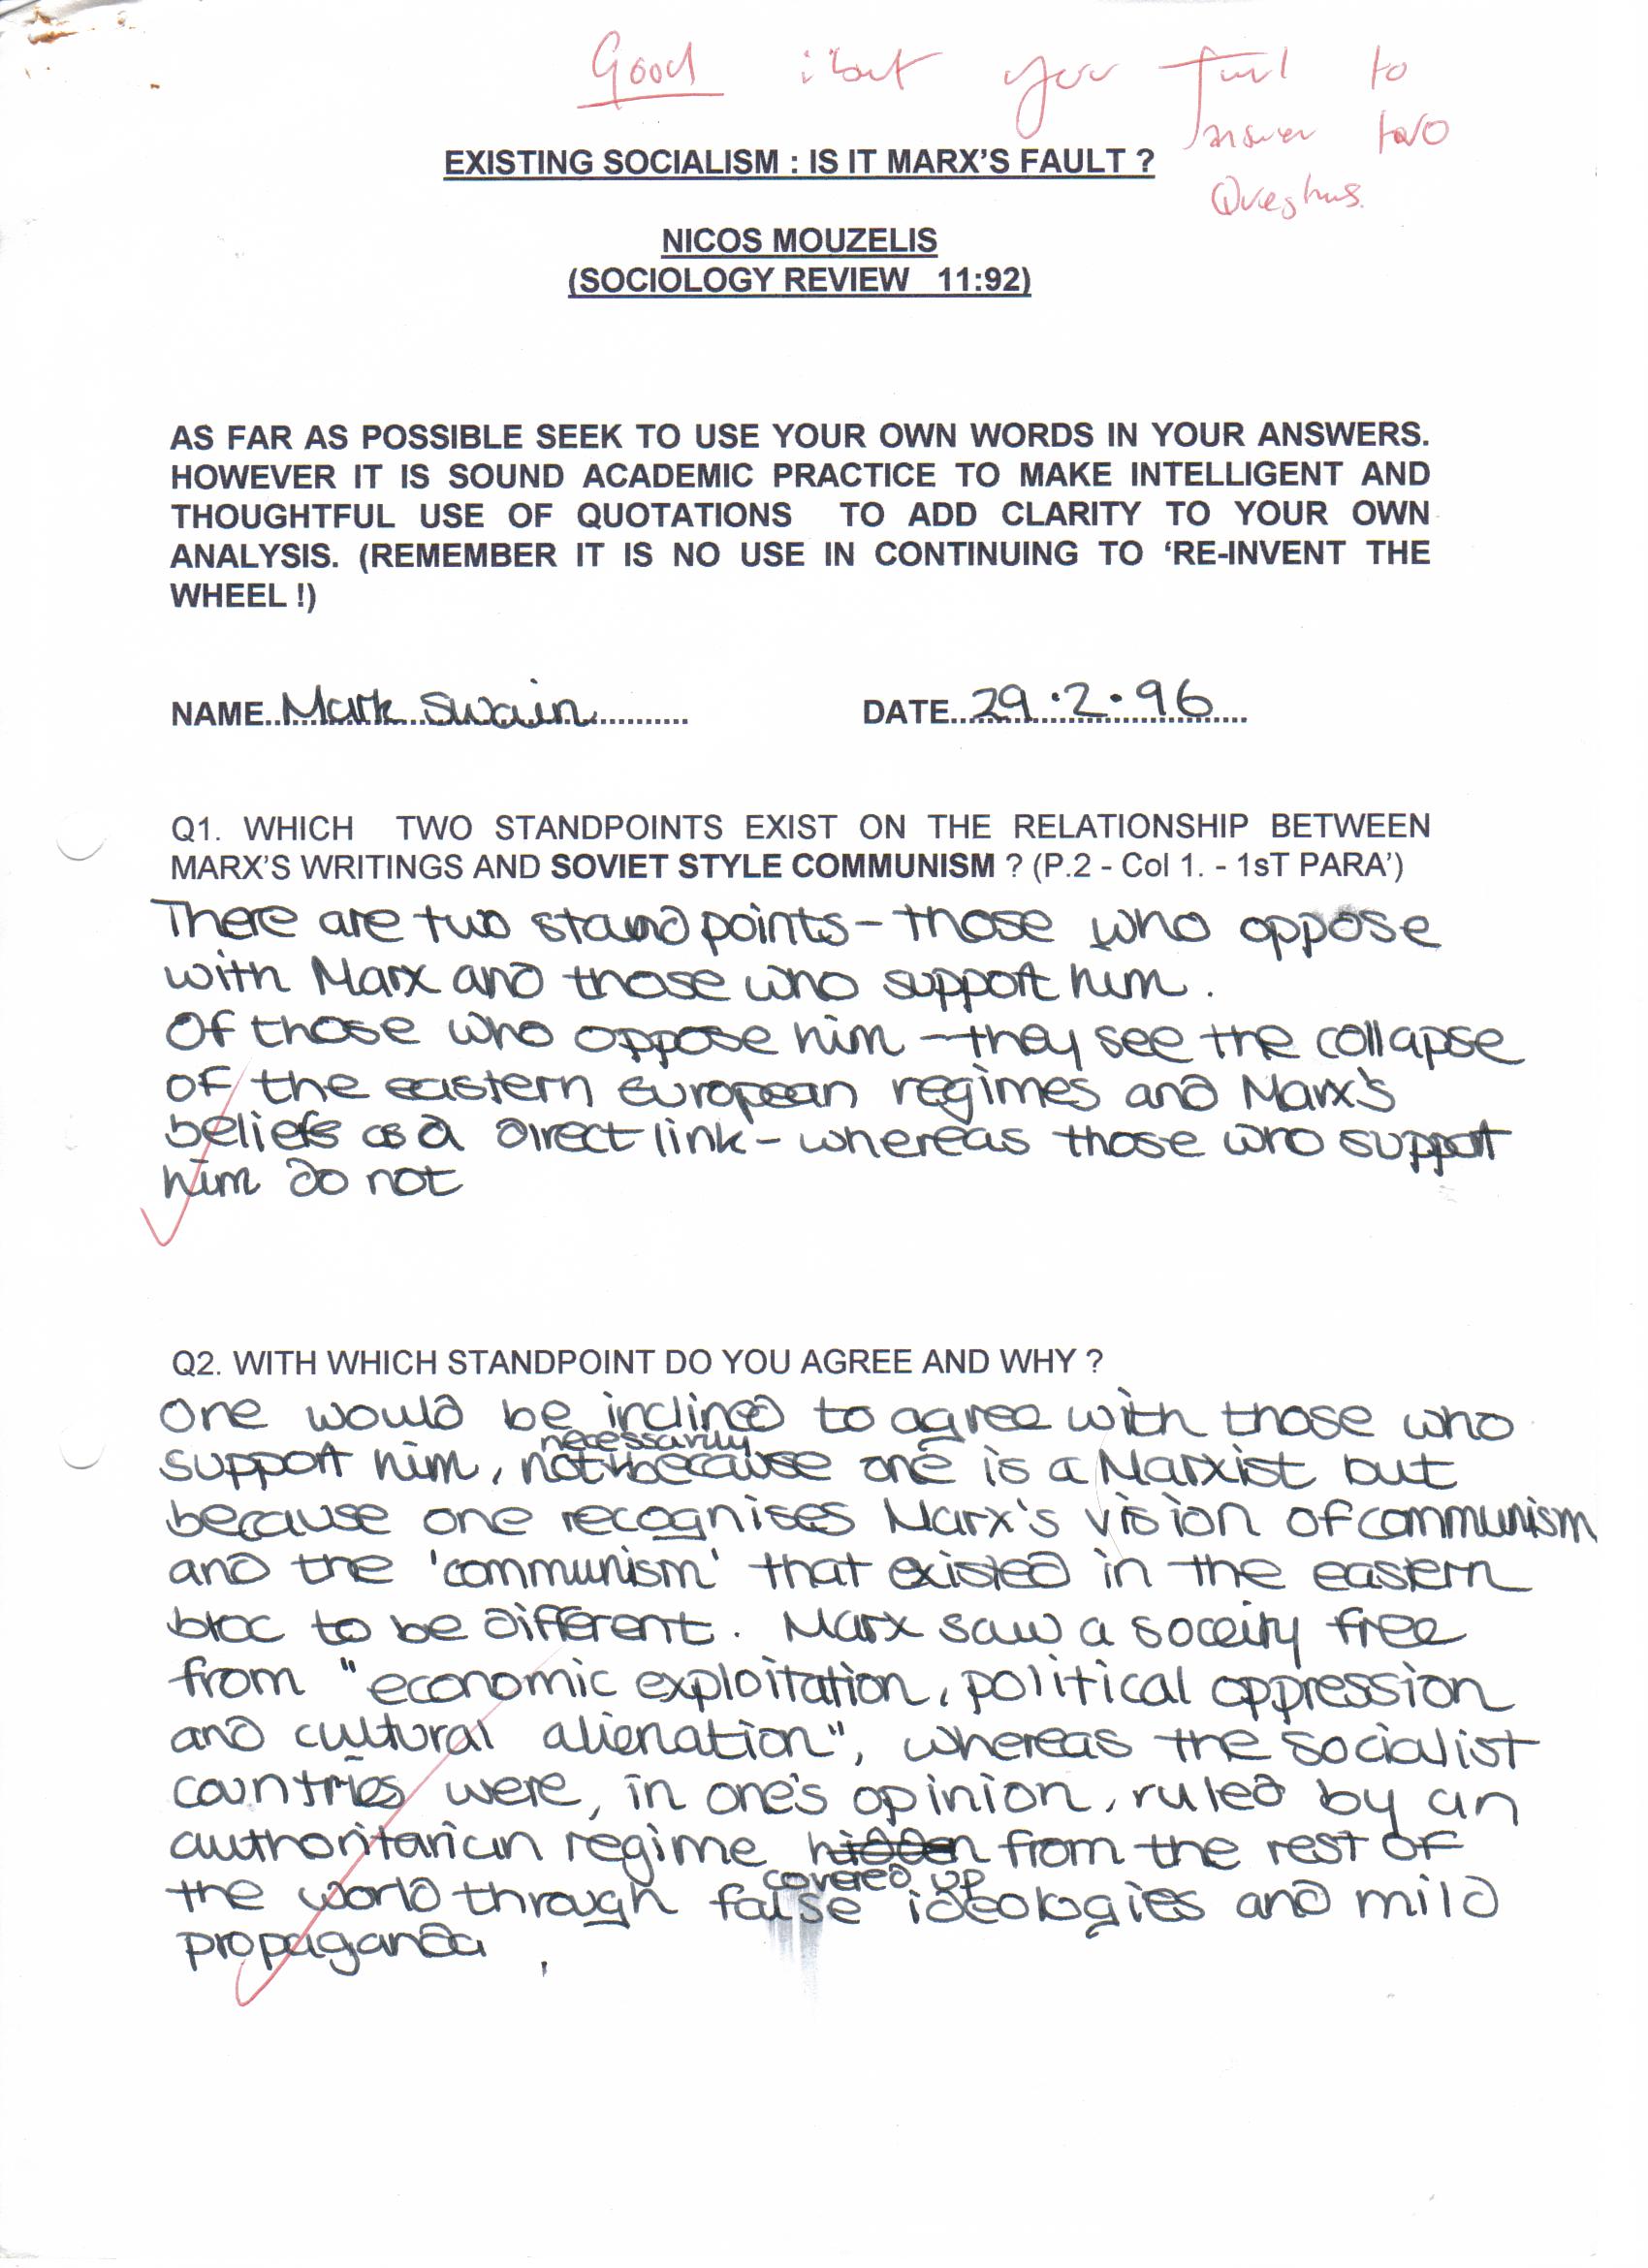 Good : but you fail to
answer two
Questions.
EXISTING SOCIALISM : IS IT MARX'S FAULT ?
NICOS MOUZELIS
(SOCIOLOGY REVIEW 11:92)
AS FAR AS POSSIBLE SEEK TO USE YOUR OWN WORDS IN YOUR ANSWERS.
HOWEVER IT IS SOUND ACADEMIC PRACTICE TO MAKE INTELLIGENT AND
THOUGHTFUL USE OF QUOTATIONS TO ADD CLARITY TO YOUR OWN
ANALYSIS. (REMEMBER IT IS NO USE IN CONTINUING TO 'RE-INVENT THE
WHEEL !)
NAME..Mark Swain........... DATE..29.2.96....
Q1. WHICH TWO STANDPOINTS EXIST ON THE RELATIONSHIP BETWEEN
MARX'S WRITINGS AND SOVIET STYLE COMMUNISM ? (P.2 - Col 1. - 1sT PARA')
There are two standpoints - those who oppose
with Marx and those who support him.
Of those who oppose him - they see the collapse
of the eastern european regimes and Marx's
beliefs as a direct link - whereas those who support
him do not
Q2. WITH WHICH STANDPOINT DO YOU AGREE AND WHY ?
One would be inclined to agree with those who
support him, not necessarily because one is a Marxist but
because one recognises Marx's vision of communism
and the 'communism' that existed in the eastern
bloc to be different. Marx saw a soceity free
from "economic exploitation, political oppression
and cultural alienation", whereas the socialist
countries were, in one's opinion, ruled by an
authoritarian regime hidden from the rest of
the world through false covered up ideologies and mild
propaganda